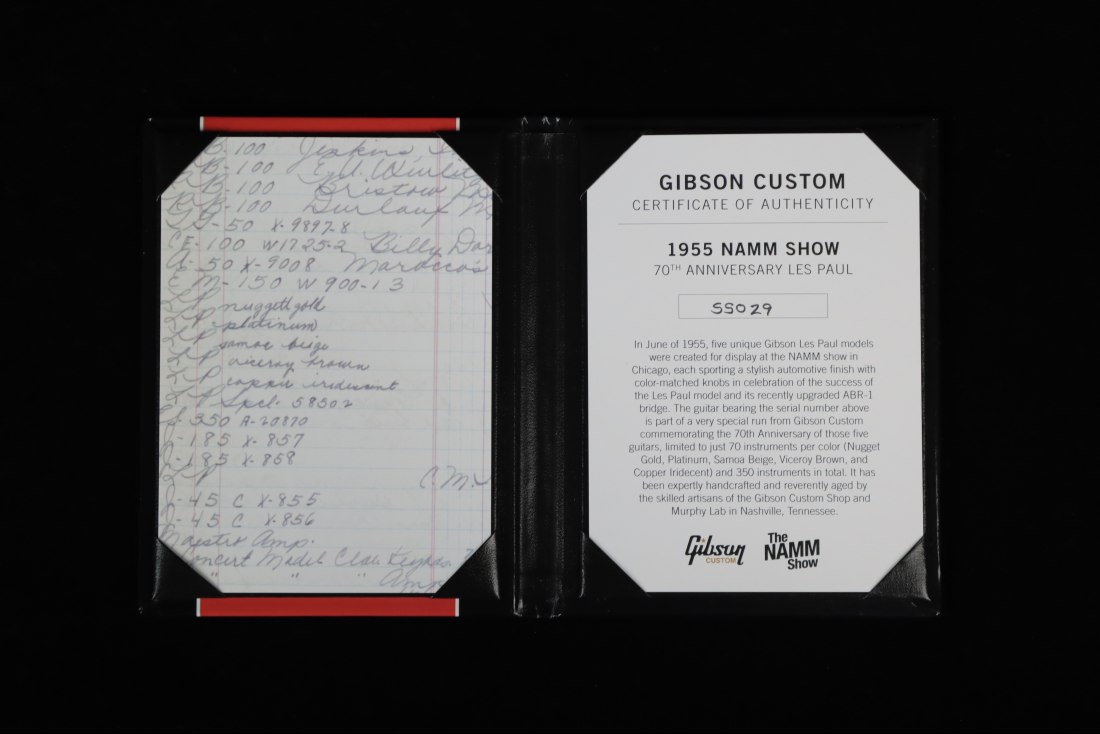 B-100 Jenkins
B-100 Wurlit
B-100 Bristow
B-100
-50 X-9897-8
CE-100 W1725-2 Billy Dor
A-50 X-9008 Marocco's
E M-150 W 900-13
LP nuggett gold
LP platinum
LP samoe beige
LP viceroy brown
LP copper iridescent
LP Spcl. 58502
350 A-20870
J-185 X-857
J-185 X-858
LP C.M.
J-45 C X-855
J-45 C X-856
Maestro Amp.
Concert Model
" " " Amp
GIBSON CUSTOM
CERTIFICATE OF AUTHENTICITY
1955 NAMM SHOW
70TH ANNIVERSARY LES PAUL
55029
In June of 1955, five unique Gibson Les Paul models
were created for display at the NAMM show in
Chicago, each sporting a stylish automotive finish with
color-matched knobs in celebration of the success of
the Les Paul model and its recently upgraded ABR-1
bridge. The guitar bearing the serial number above
is part of a very special run from Gibson Custom
commemorating the 70th Anniversary of those five
guitars, limited to just 70 instruments per color (Nugget
Gold, Platinum, Samoa Beige, Viceroy Brown, and
Copper Iridecent) and 350 instruments in total. It has
been expertly handcrafted and reverently aged by
the skilled artisans of the Gibson Custom Shop and
Murphy Lab in Nashville, Tennessee.
Gibson
CUSTOM
The
NAMM
Show